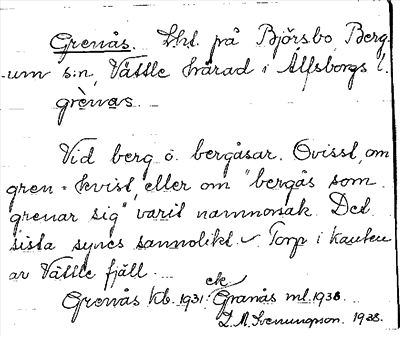 Grenås. Lht. på Björsbo Berg-
um sn, Vättle härad i Älfsborgs l.
grènas.
Vid berg o. bergåsar. Ovisst, om
gren = kvist, eller om "bergås som
grenar sig" varit namnorsak. Det
sista synes sannolikt. Torp i kanten
av Vättle fjäll.
Grenås kb. 1931. Granås ml. 1938.
1938.